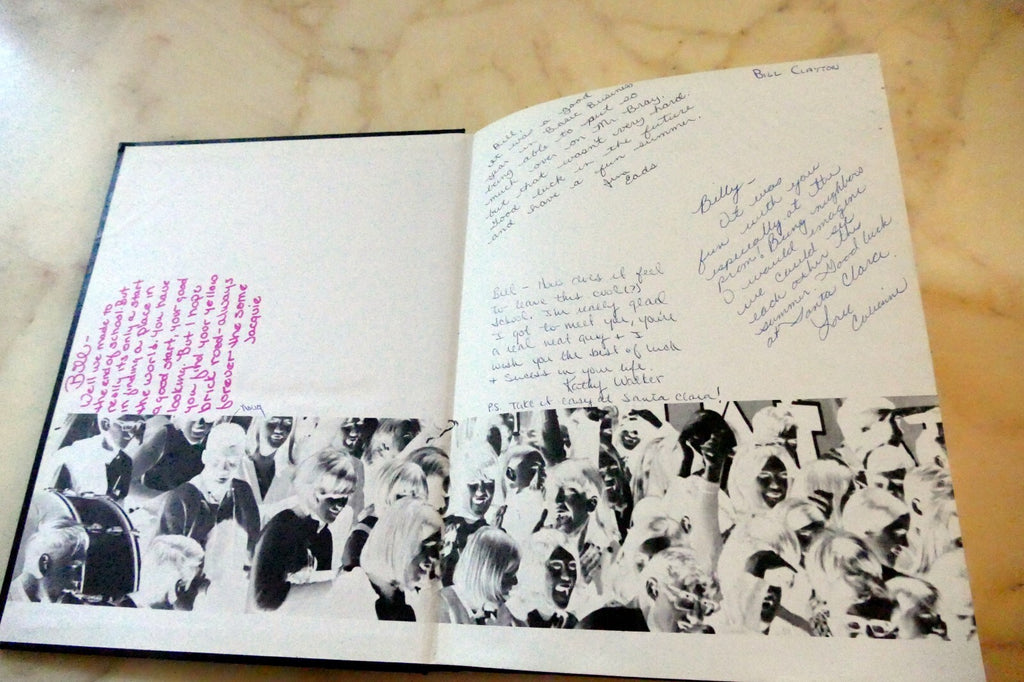 Bill-
Well we made to
the end of school! But
really its only a start
in finding a place in
the world. You have
a good start, your good
looking. But I hope
you find your yellow
brick road-always
forever-the same
Jacquie
Doug
BILL CLAYTON
Bill,
It was a good
year in Basic Business
being able to put so
much over on Mr. Bray.
but that wasn't very hard.
Good luck in the future
and have a fun summer.
Jim
Eads
Billy-
It was
fun with you
especially at the
prom! Being neighbors
I would imagine
we could sit
each other this
summer. Good luck
at Santa Clara.
Love
Bill - How does it feel
to leave this cool(?)
school. I'm really glad
I got to meet you, you're
a real neat guy & I
wish you the best of luck
& Sucess in your life.
Kathy Walker
P.S. Take it easy at Santa Clara!